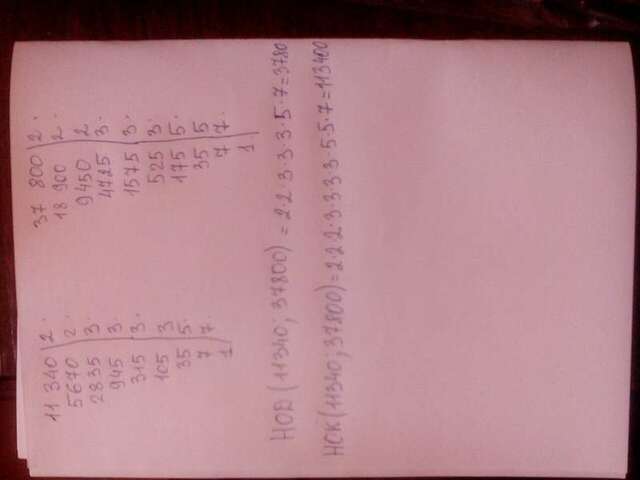 11 340 | 2·
5670 | 2·
2835 | 3·
945 | 3·
315 | 3·
105 | 3
35 | 5·
7 | 7·
1
37 800 | 2·
18 900 | 2·
9450 | 2
4725 | 3·
1575 | 3·
525 | 3·
175 | 5·
35 | 5
7 | 7·
1
НОД (11340; 37800) = 2·2·3·3·3·5·7=3780
НОК(11340; 37800)=2·2·2·3·3·3·3·5·5·7=113400